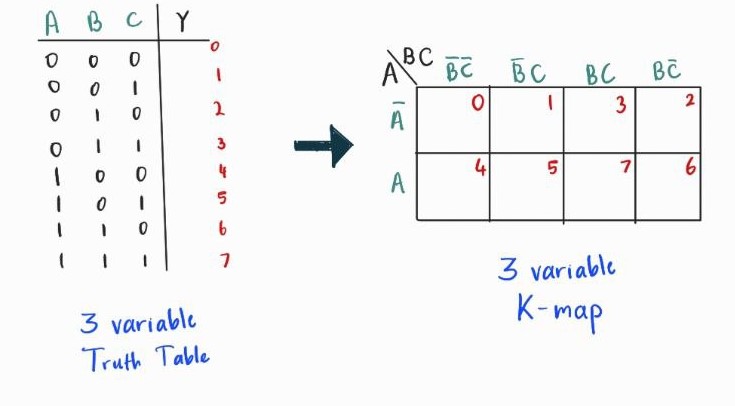 A B C Y
0 0 0 0
0 0 1 1
0 1 0 2
0 1 1 3
1 0 0 4
1 0 1 5
1 1 0 6
1 1 1 7
3 variable
Truth Table
A BC B̅C̅ B̅C BC BC̅
A̅ 0 1 3 2
A 4 5 7 6
3 variable
K-map